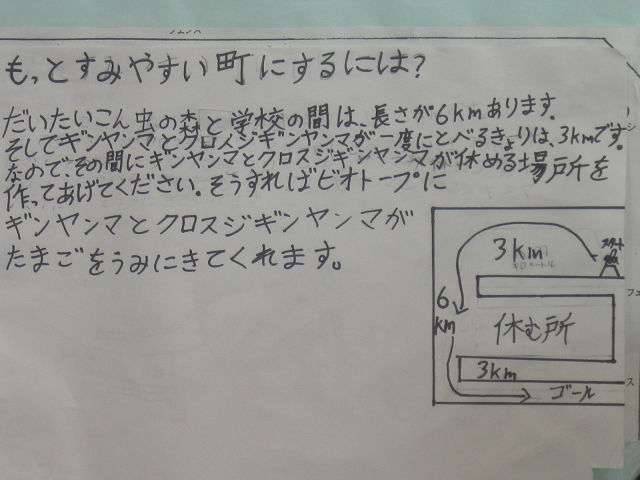 もっとすみやすい町にするには?
だいたいこん虫の森と学校の間は、長さが6kmあります。
そしてギンヤンマとクロスジギンヤンマが一度にとべるきょりは、3kmです。
なので、その間にギンヤンマとクロスジギンヤンマが休める場所を
作ってあげてください。そうすればビオトープに
ギンヤンマとクロスジギンヤンマが
たまごをうみにきてくれます。
スタート
3km
キロメートル
6
km
休む所
3km
ゴール
フェ
ス